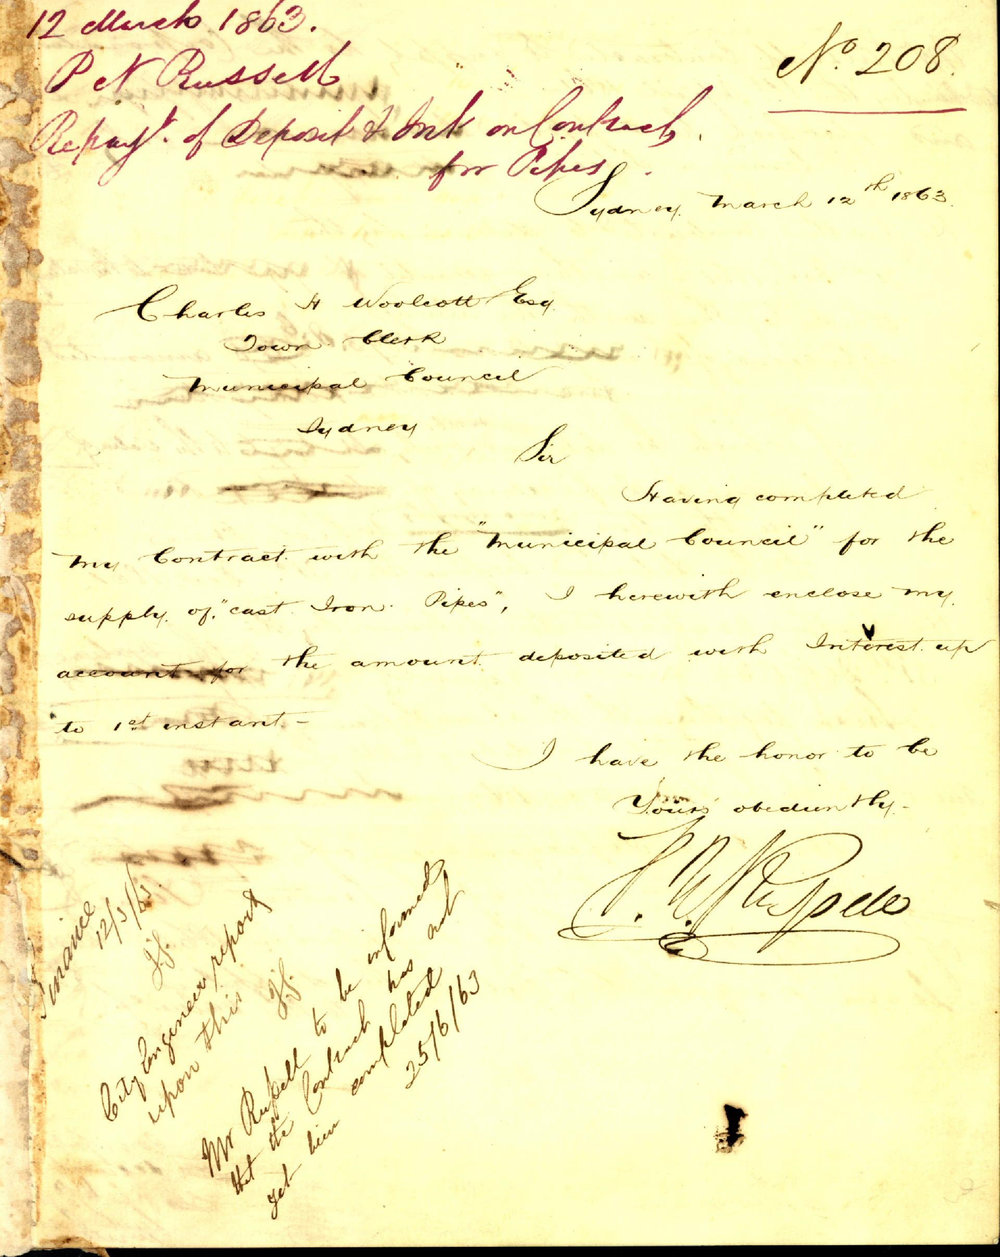 12 March 1863.
P N Russell
Repayt. of Deposit & Int on Contract
for Pipes.
No. 208.
Sydney. March 12th 1863.
Charles H Woolcott Esq
Town Clerk
Municipal Council
Sydney
Sir
Having completed
my Contract with the "Municipal Council" for the
supply of, "cast Iron Pipes", I herewith enclose my
account for the amount deposited with Interest up
to 1st instant -
I have the honor to be
Yours obediently -
P. N. Russell
Finance
12/3/63.
City Engineer report
upon this
Mr Russell to be informed
that the Contract has not
yet been completed
25/6/63